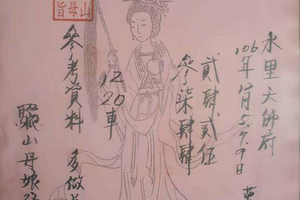 水里天師府
106年12月5.7.9日
貳肆貳伍
參柒肆肆
12
20車
參考資料
驪山母娘
山母旨